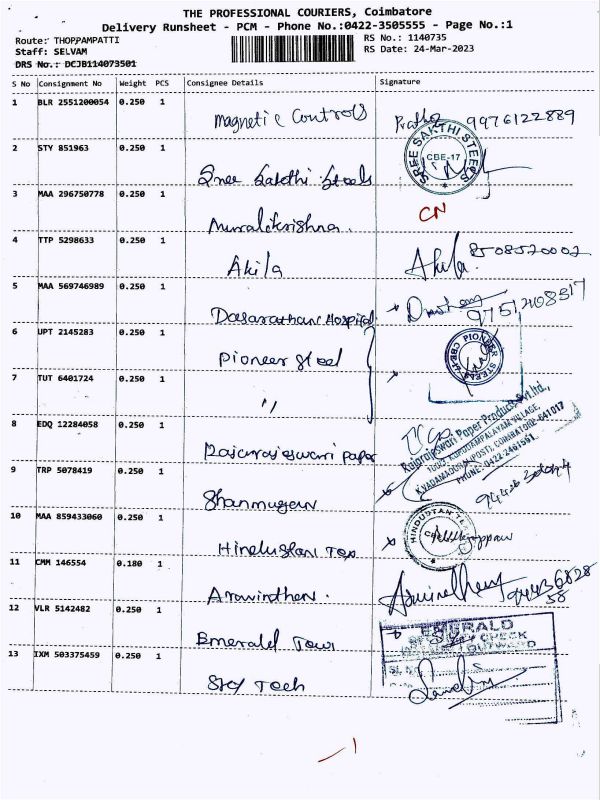 THE PROFESSIONAL COURIERS, Coimbatore
Delivery Runsheet - PCM - Phone No.:0422-3505555 - Page No.:1
Route: THOPPAMPATTI
Staff: SELVAM
DRS No.: DCJB114073501
RS No.: 1140735
RS Date: 24-Mar-2023
S No Consignment No Weight PCS Consignee Details Signature
1 BLR 2551200054 0.250 1 Magnetic Controls 9976122889
2 STY 851963 0.250 1 Sree Sakthi Steels SREE SAKTHI STEELS CBE-17
3 MAA 296750778 0.250 1 Muralikrishna. CN
4 TTP 5298633 0.250 1 Akila Akila. 8508520002
5 MAA 569746989 0.250 1 Dasarathan Hospital
6 UPT 2145283 0.250 1 Pioneer Steel PIONEER
7 TUT 6401724 0.250 1 "
8 EDQ 12284058 0.250 1 Rajarajeswari paper Rajarajeswari Paper Products Pvt.Ltd.,
COIMBATORE-641017
9 TRP 5078419 0.250 1 Shanmugam
10 MAA 859433060 0.250 1 Hindustan Tex HINDUSTAN
11 CMM 146554 0.180 1 Aravindhan.
12 VLR 5142482 0.250 1 Emerald Towi EMERALD
13 IXM 503375459 0.250 1 Sky Tech